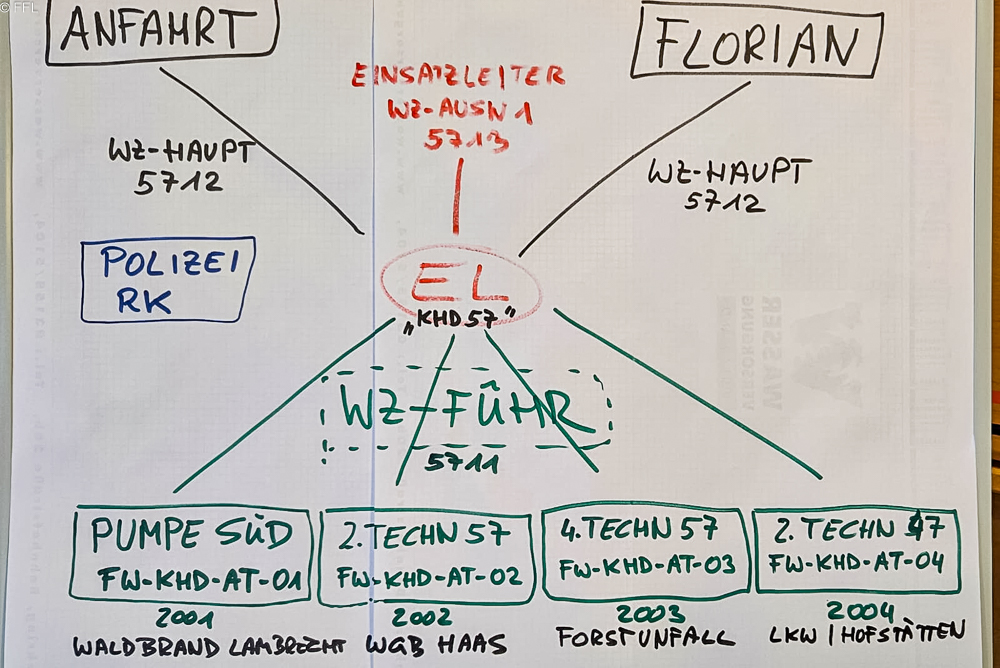 © FFL
ANFAHRT
FLORIAN
EINSATZLEITER
WZ-AUSN 1
5713
WZ-HAUPT
5712
WZ-HAUPT
5712
POLIZEI
RK
EL
„KHD 57"
WZ-FÜHR
5711
PUMPE SÜD
FW-KHD-AT-01
2001
WALDBRAND LAMBRECHT
2. TECHN 57
FW-KHD-AT-02
2002
WGB HAAS
4. TECHN 57
FW-KHD-AT-03
2003
FORSTUNFALL
2. TECHN 47
FW-KHD-AT-04
2004
LKW / HOFSTÄTTEN
WASSER
VERSORGUNG